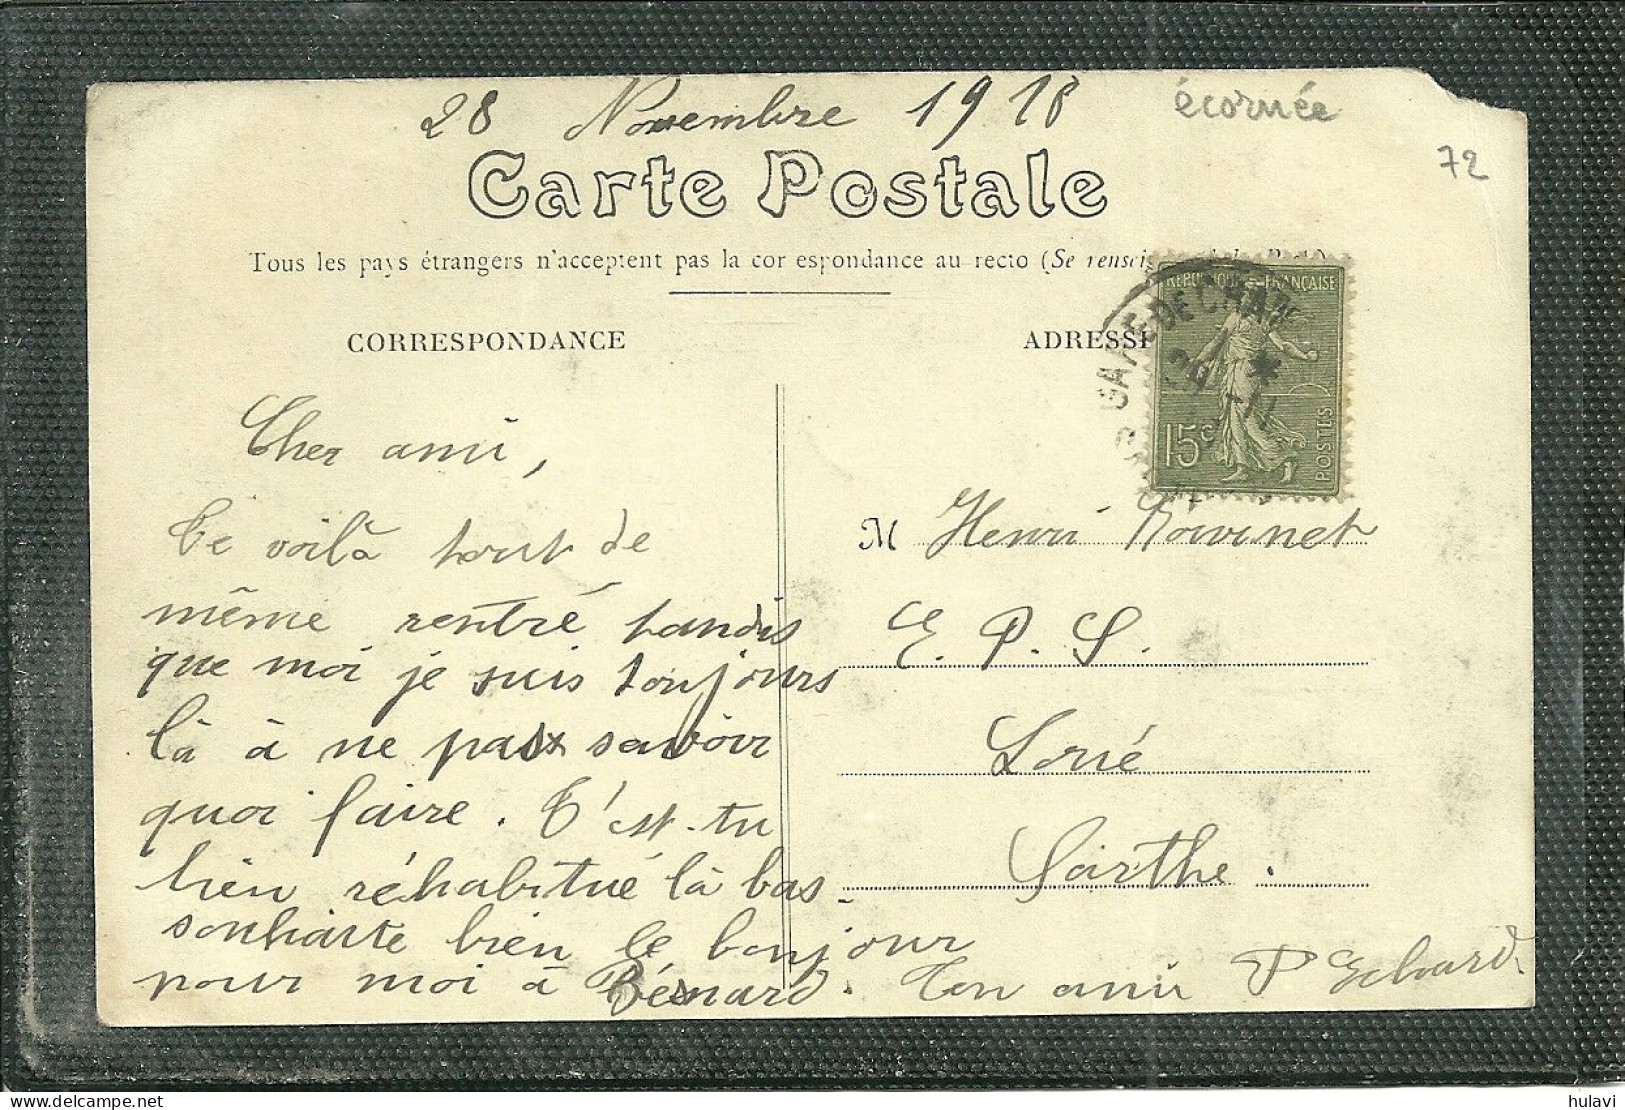 28 Novembre 1918
écornée
72
Carte Postale
Tous les pays étrangers n'acceptent pas la cor espondance au recto (Se rensei
CORRESPONDANCE
ADRESSE
REPUBLIQUE FRANÇAISE
15c
POSTES
GARE DE CHA
Cher ami,
Te voilà tout de
même rentré tandis
que moi je suis toujours
là à ne pas savoir
quoi faire. T'est-tu
bien réhabitué là bas.
souhaite bien le bonjour
pour moi à Bénard. Ton ami P
M Henri
E. P. S.
Loué
Sarthe.
hulavi